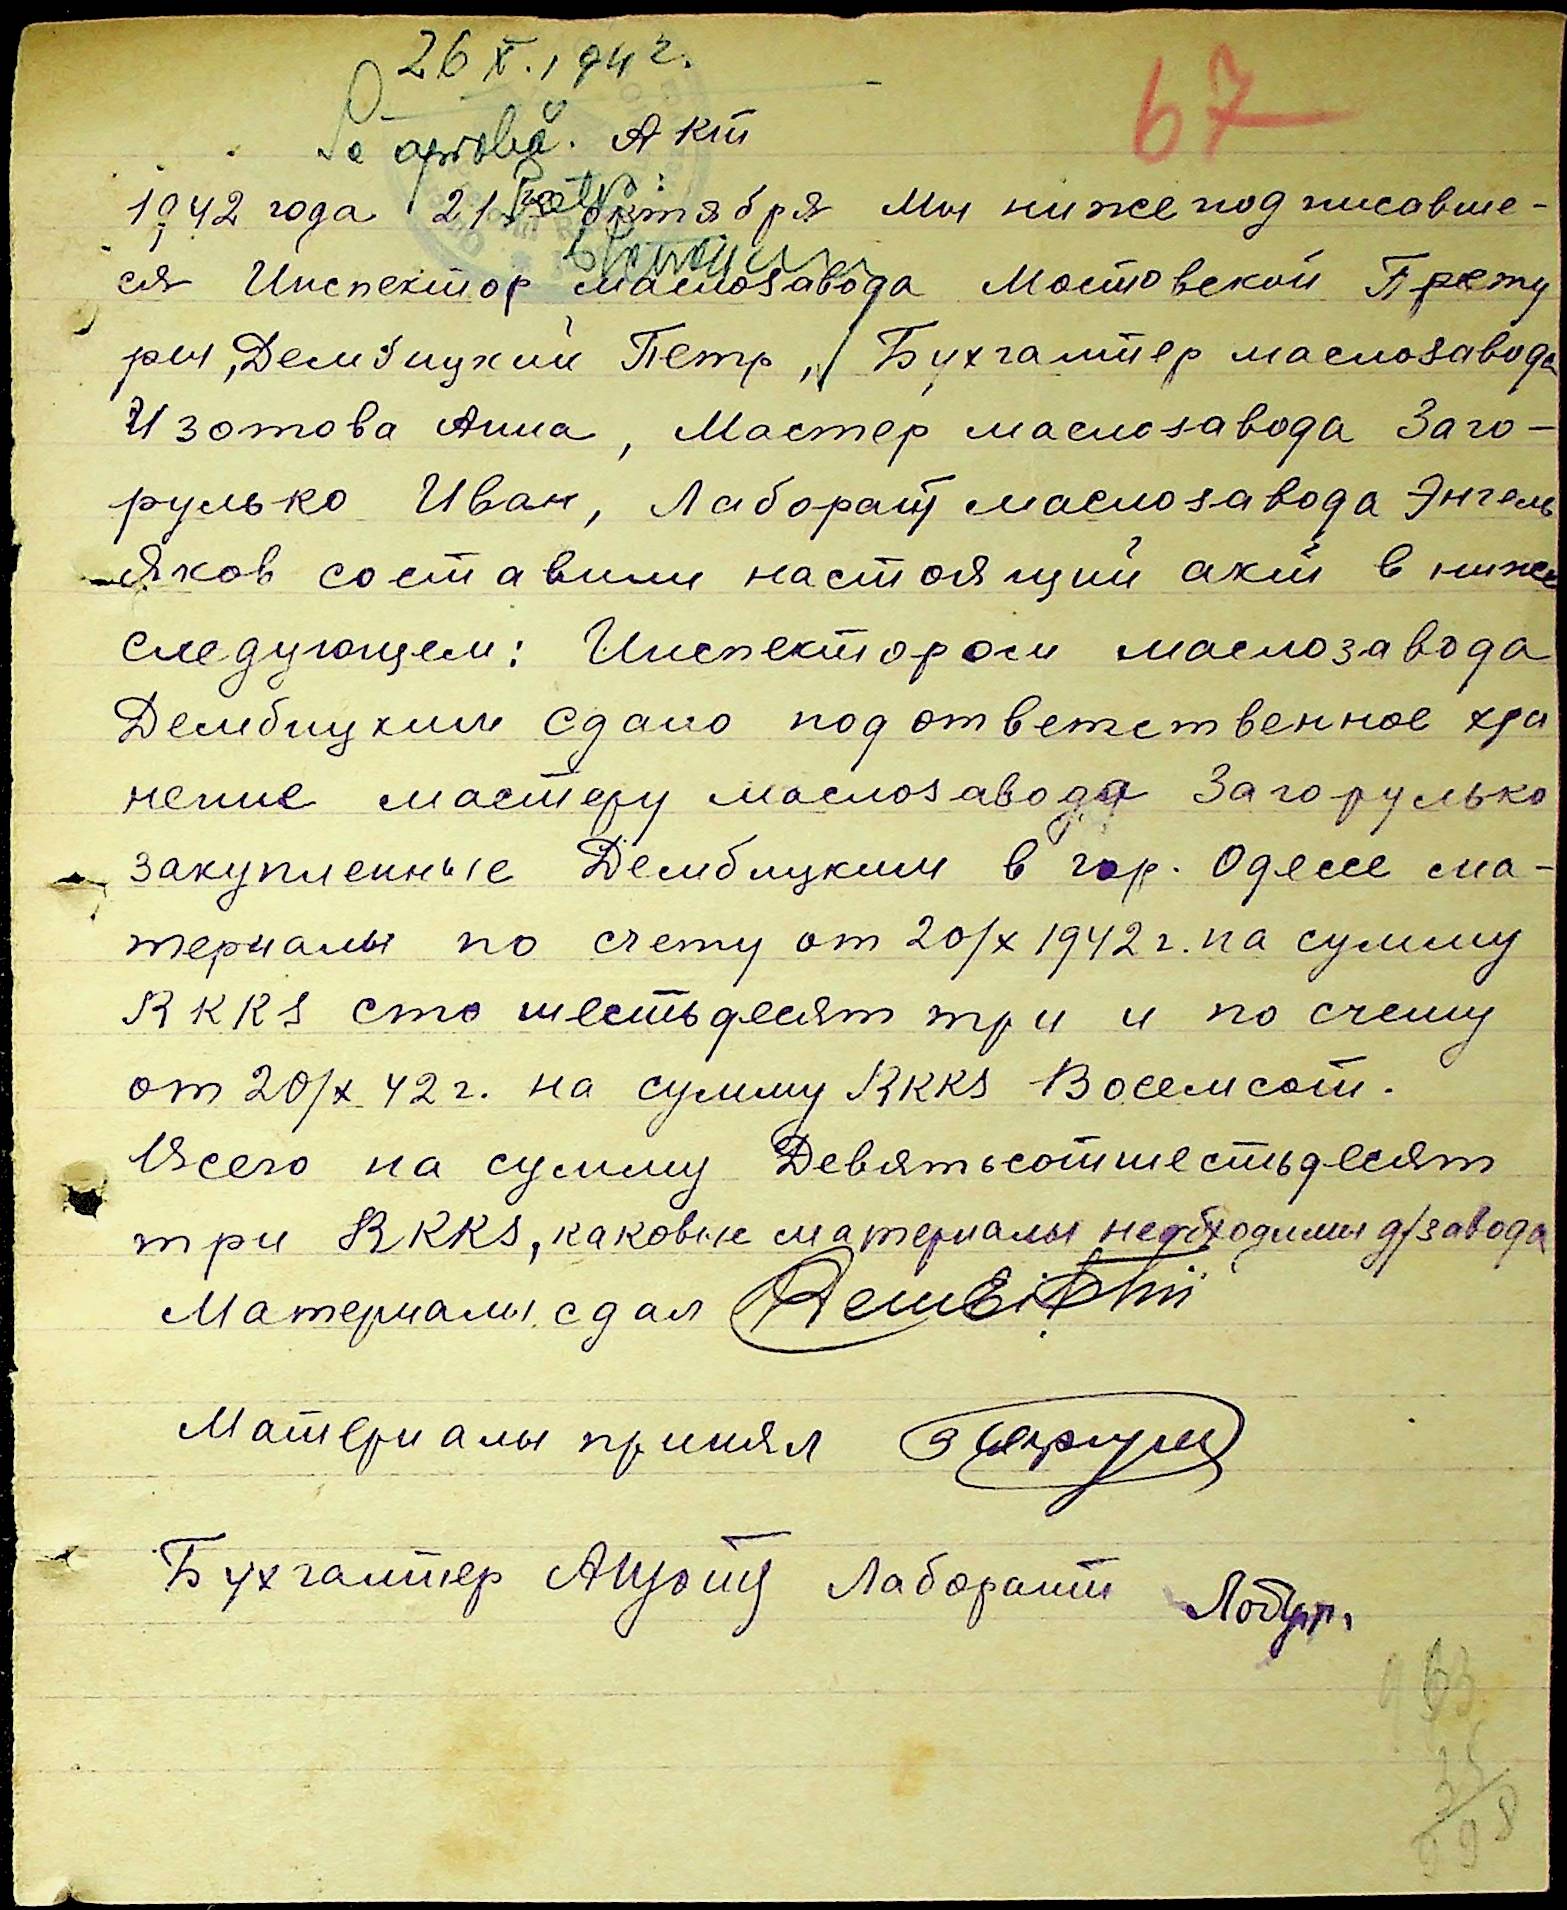 26 X. 1942.
67
Se aprobă. Акт
1942 года 21 октября Мы нижеподписавше-
ся Инспектор маслозавода Мостовской Прету
ры, Дембицкий Петр, Бухгалтер маслозавода
Изотова Анна, Мастер маслозавода Заго-
рулько Иван, Лаборант маслозавода Энгель
Яков составили настоящий акт в ниже
следующем: Инспектором маслозавода
Дембицким сдано под ответственное хра
нение мастеру маслозавода Загорулько
закупленные Дембицким в гор. Одессе ма-
териалы по счету от 20/X 1942 г. на сумму
RKKS сто шестьдесят три и по счету
от 20/X 42 г. на сумму RKKS Восемсот.
Всего на сумму Девятьсотшестьдесят
три RKKS, каковые материалы необходимы д/завода
Материалы сдал
Материалы принял
Бухгалтер Лаборант
963
35
998